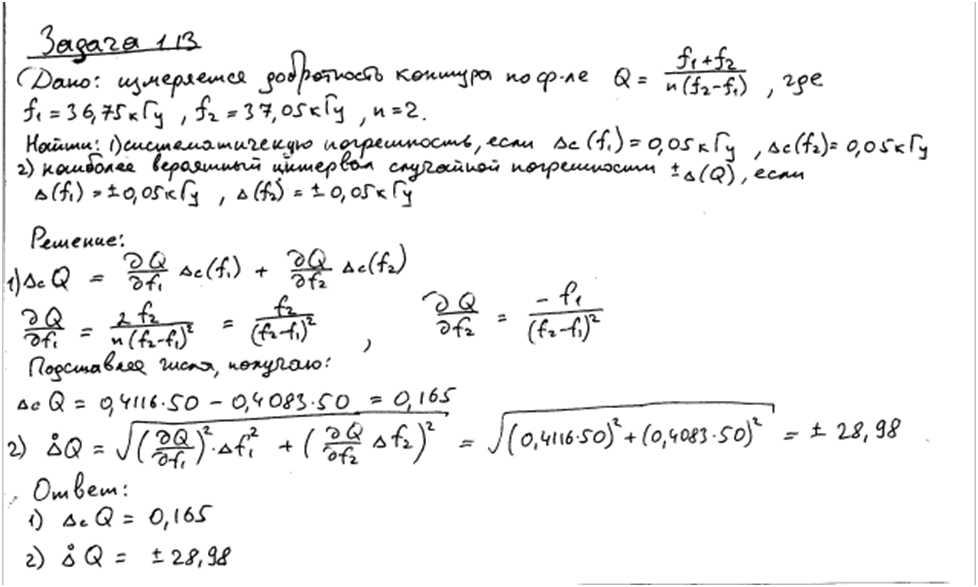 Задача 1.13
Дано: измеряется добротность контура по ф-ле Q = (f₁+f₂)/(n(f₂-f₁)), где
f₁=36,75кГц, f₂=37,05кГц, n=2.
Найти: 1) систематическую погрешность, если Δc(f₁)=0,05кГц, Δc(f₂)=0,05кГц
2) наиболее вероятный интервал случайной погрешности ±Δ(Q), если
Δ(f₁)=±0,05кГц, Δ(f₂)=±0,05кГц
Решение:
1) ΔcQ = ∂Q/∂f₁ Δc(f₁) + ∂Q/∂f₂ Δc(f₂)
∂Q/∂f₁ = 2f₂/(n(f₂-f₁)²) = f₂/(f₂-f₁)², ∂Q/∂f₂ = -f₁/(f₂-f₁)²
Подставляя числа, получаю:
ΔcQ = 0,4116·50 - 0,4083·50 = 0,165
2) Δ̊Q = √((∂Q/∂f₁)²·Δf₁² + (∂Q/∂f₂ Δf₂)²) = √((0,4116·50)²+(0,4083·50)²) = ±28,98
Ответ:
1) ΔcQ = 0,165
2) Δ̊Q = ±28,98